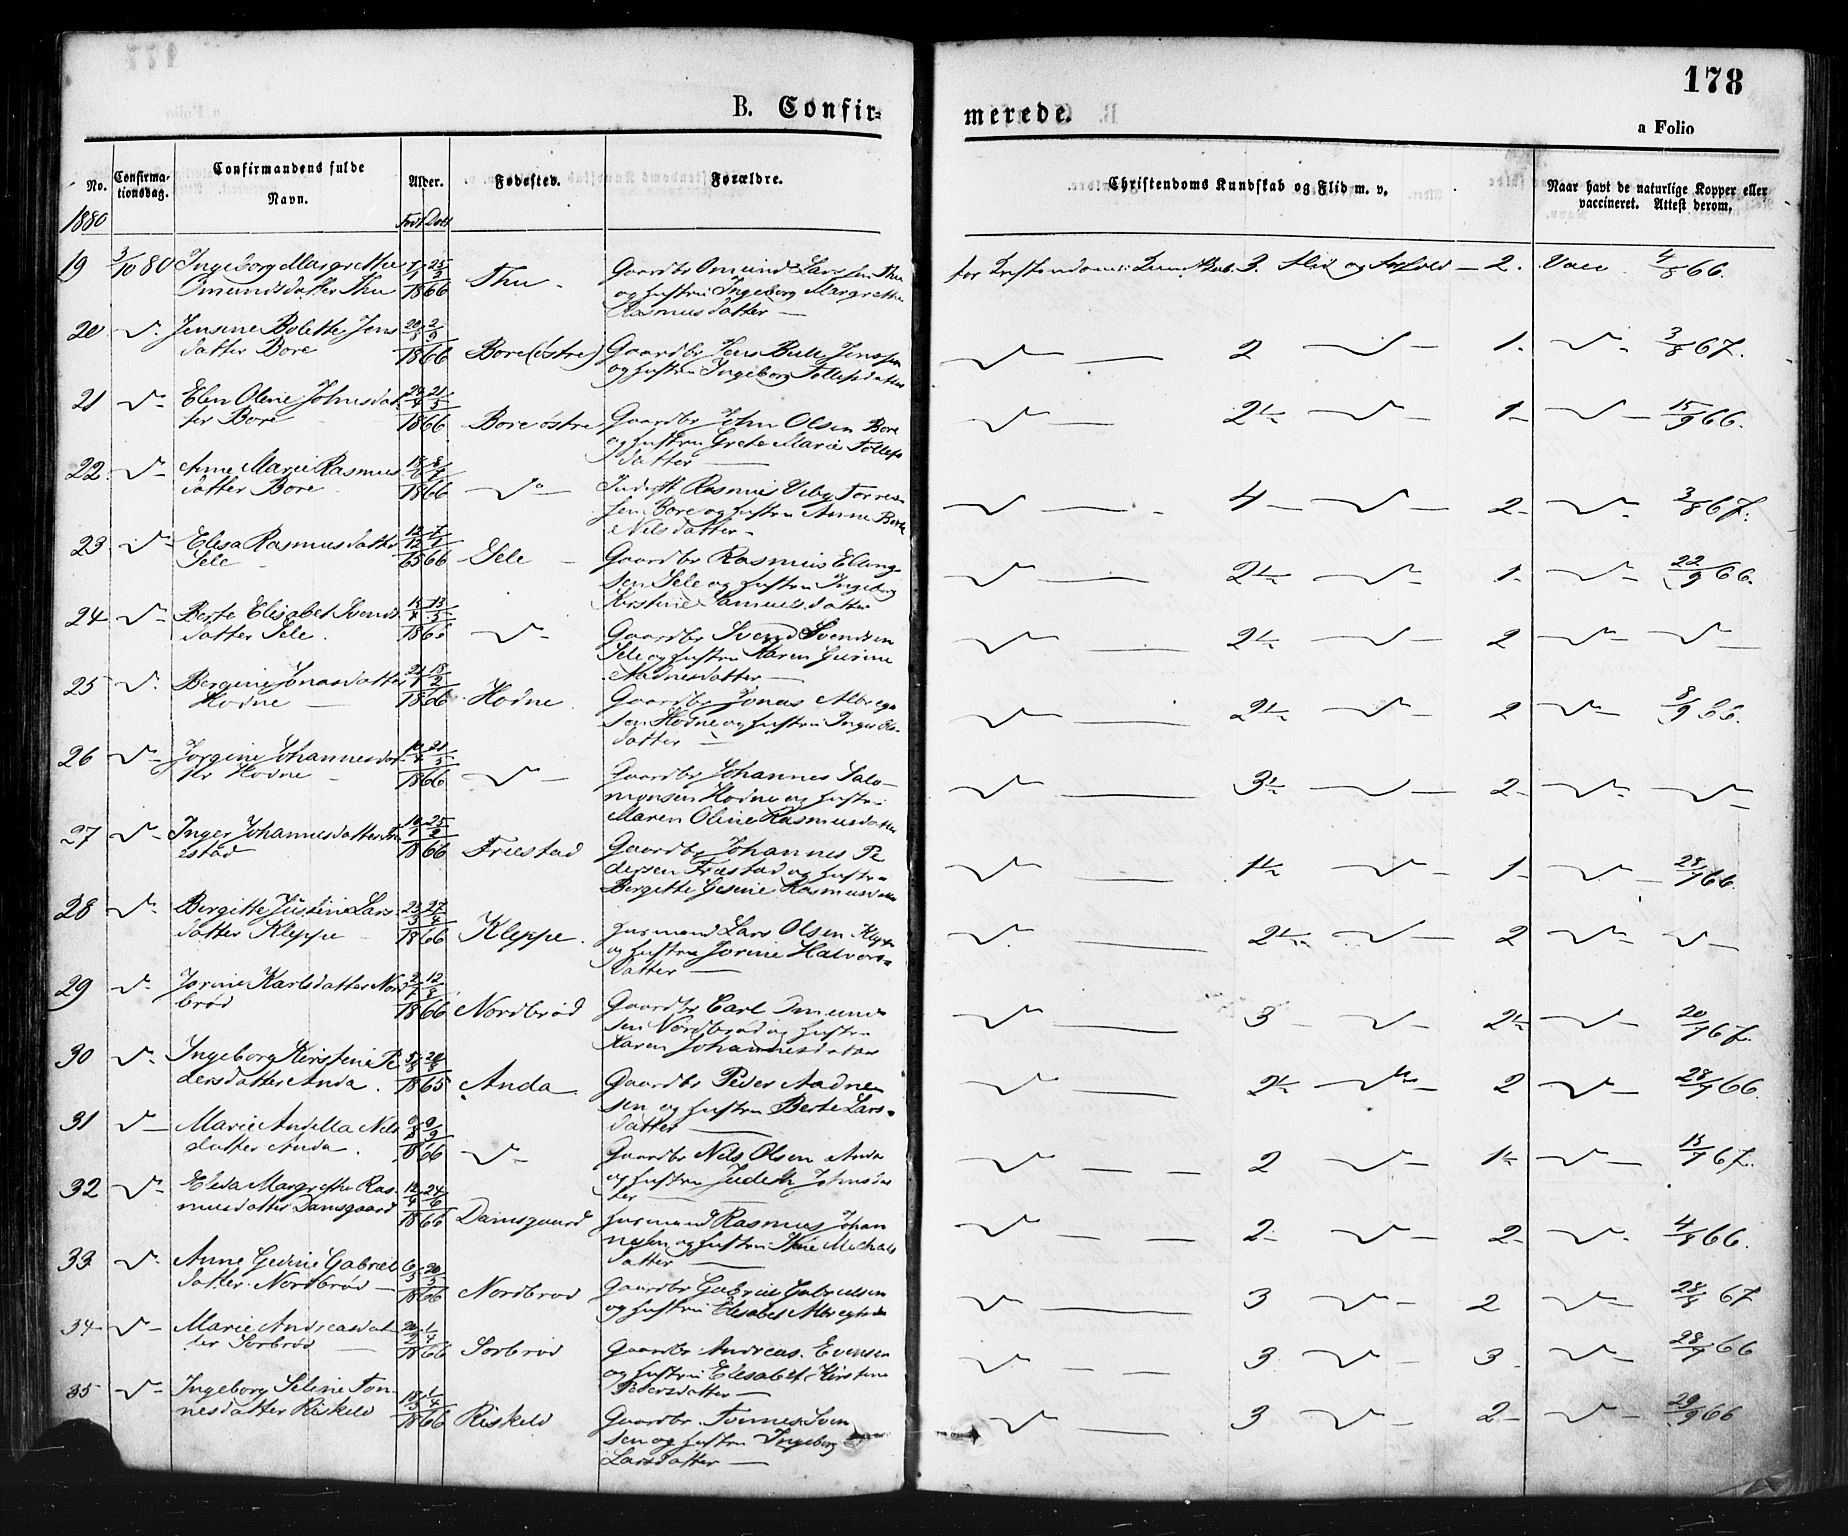 178
B. Confir=
merede.
a Folio
No.
Confirma-
tionsdag.
Confirmandens fulde
Navn.
Alder.
Fødested.
Forældre.
Christendoms Kundskab og Flid m. v.
Naar havt de naturlige Kopper eller
vaccineret. Attest derom.
1880
Født Døbt
19 3/10 80 Ingeborg Margrethe 25/3 Gaardbr Omund Larssen Thu
Omundsdatter Thu 1866 Thu og hustru Ingeborg Margrethe
Rasmusdatter
for Kristendoms Kundskab 3. Flid og Forhold 2. Vacc 4/8 66.
20 Jensine Bolette Jens 20/3 2/3
datter Bore 1866 Bore (østre) Gaardbr Jens Bull Jenssen
og hustru Ingeborg Tollefsdatter
2 1 3/8 67.
21 Elen Oline Johnsdat 21/5
ter Bore 1866 Bore østre Gaardbr John Olsen Bore
og hustru Grete Marie Tollefs
datter
2 1/2 1 15/9 66.
22 Anne Marie Rasmus
datter Bore 1866 Inderst Rasmus Torres
sen Bore og hustru Anne Berte
Nilsdatter
4 2 3/8 67.
23 Elisa Rasmusdatter 12/12 7/1
Sele 65 66 Sele Gaardbr Rasmus Elling
sen Sele og hustru Ingeborg
Kirstine Samuelsdatter
2 1/2 1 22/9 66.
24 Berte Elisabet Svends 13/5
datter Sele. 1866 Gaardbr Svend Svendsen
Sele og hustru Karen Gurine
Aadnesdatter
2 1/2 2
25 Bergine Jonasdatter 21/1 18/2
Hodne 1866 Hodne Gaardbr Jonas Albregt
sen Hodne og hustru Inger
datter
2 1/2 2 8/9 66.
26 Jorgine Johannesdat 21/5
ter Hodne 1866 Gaardbr Johannes Salo
monsen Hodne og hustru
Maren Oline Rasmusdatter
3 1/2 2
27 Inger Johannesdatter Fri 25/2
estad 1866 Friestad Gaardbr Johannes Pe
dersen Friestad og hustru
Bergitte Gesine Rasmusdatter
1 1/2 1 28/9 66.
28 Bergitte Justine Lars 23/3 27/4
datter Kleppe 1866 Kleppe. Husmand Lars Olsen Kleppe
og hustru Jorine Halvors
datter
2 1/2 2
29 Jorine Karlsdatter Nor 12/8
brød 1866 Nordbrød Gaardbr Carl Omund
sen Nordbrød og hustru
Karen Johannesdatter
3 2 1/2 20/9 67.
30 Ingeborg Kirstine Pe
dersdatter Anda. 1865 Anda Gaardbr Peder Aadne
sen og hustru Berte Lars
datter
2 1/2 2 28/9 66.
31 Marie Andella Nils 9/9
datter Anda. 1866 Gaardbr Nils Olsen Anda
og hustru Judith Johnsdat
ter
2 1 1/2 67.
32 Elida Margrethe Ras 12/4 24/6
musdatter Damsgaard 1866 Damsgaard Husmand Rasmus Johan
nesen og hustru Mechals
datter
2 2 4/8 66.
33 Anne Gurine Gabriel 20/5
datter Nordbrød 1866 Nordbrød Gaardbr Gabriel Gabrielsen
og hustru Elisabet
3 2 28/8 67
34 Marie Andreasdat 20/2 1/4
ter Sorbrød 1866 Sorbrød Gaardbr Andreas Evensen
og hustru Elisabet Kirstine
Pedersdatter
3 3 28/9 66
35 Ingeborg Seline Ton 18/3 1/4
nesdatter Riskeld 1866 Riskeld Gaardbr Tønnes Sven
sen og hustru Ingeborg
Larsdatter
3 2 29/9 66